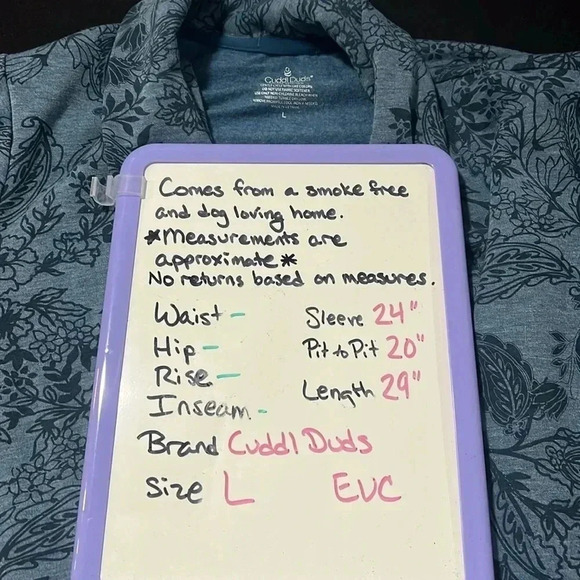 Cuddl Duds
L
Comes from a smoke free
and dog loving home.
*Measurements are
approximate*
No returns based on measures.
Waist - Sleeve 24"
Hip - Pit to Pit 20"
Rise - Length 29"
Inseam -
Brand Cuddl Duds
Size L EUC